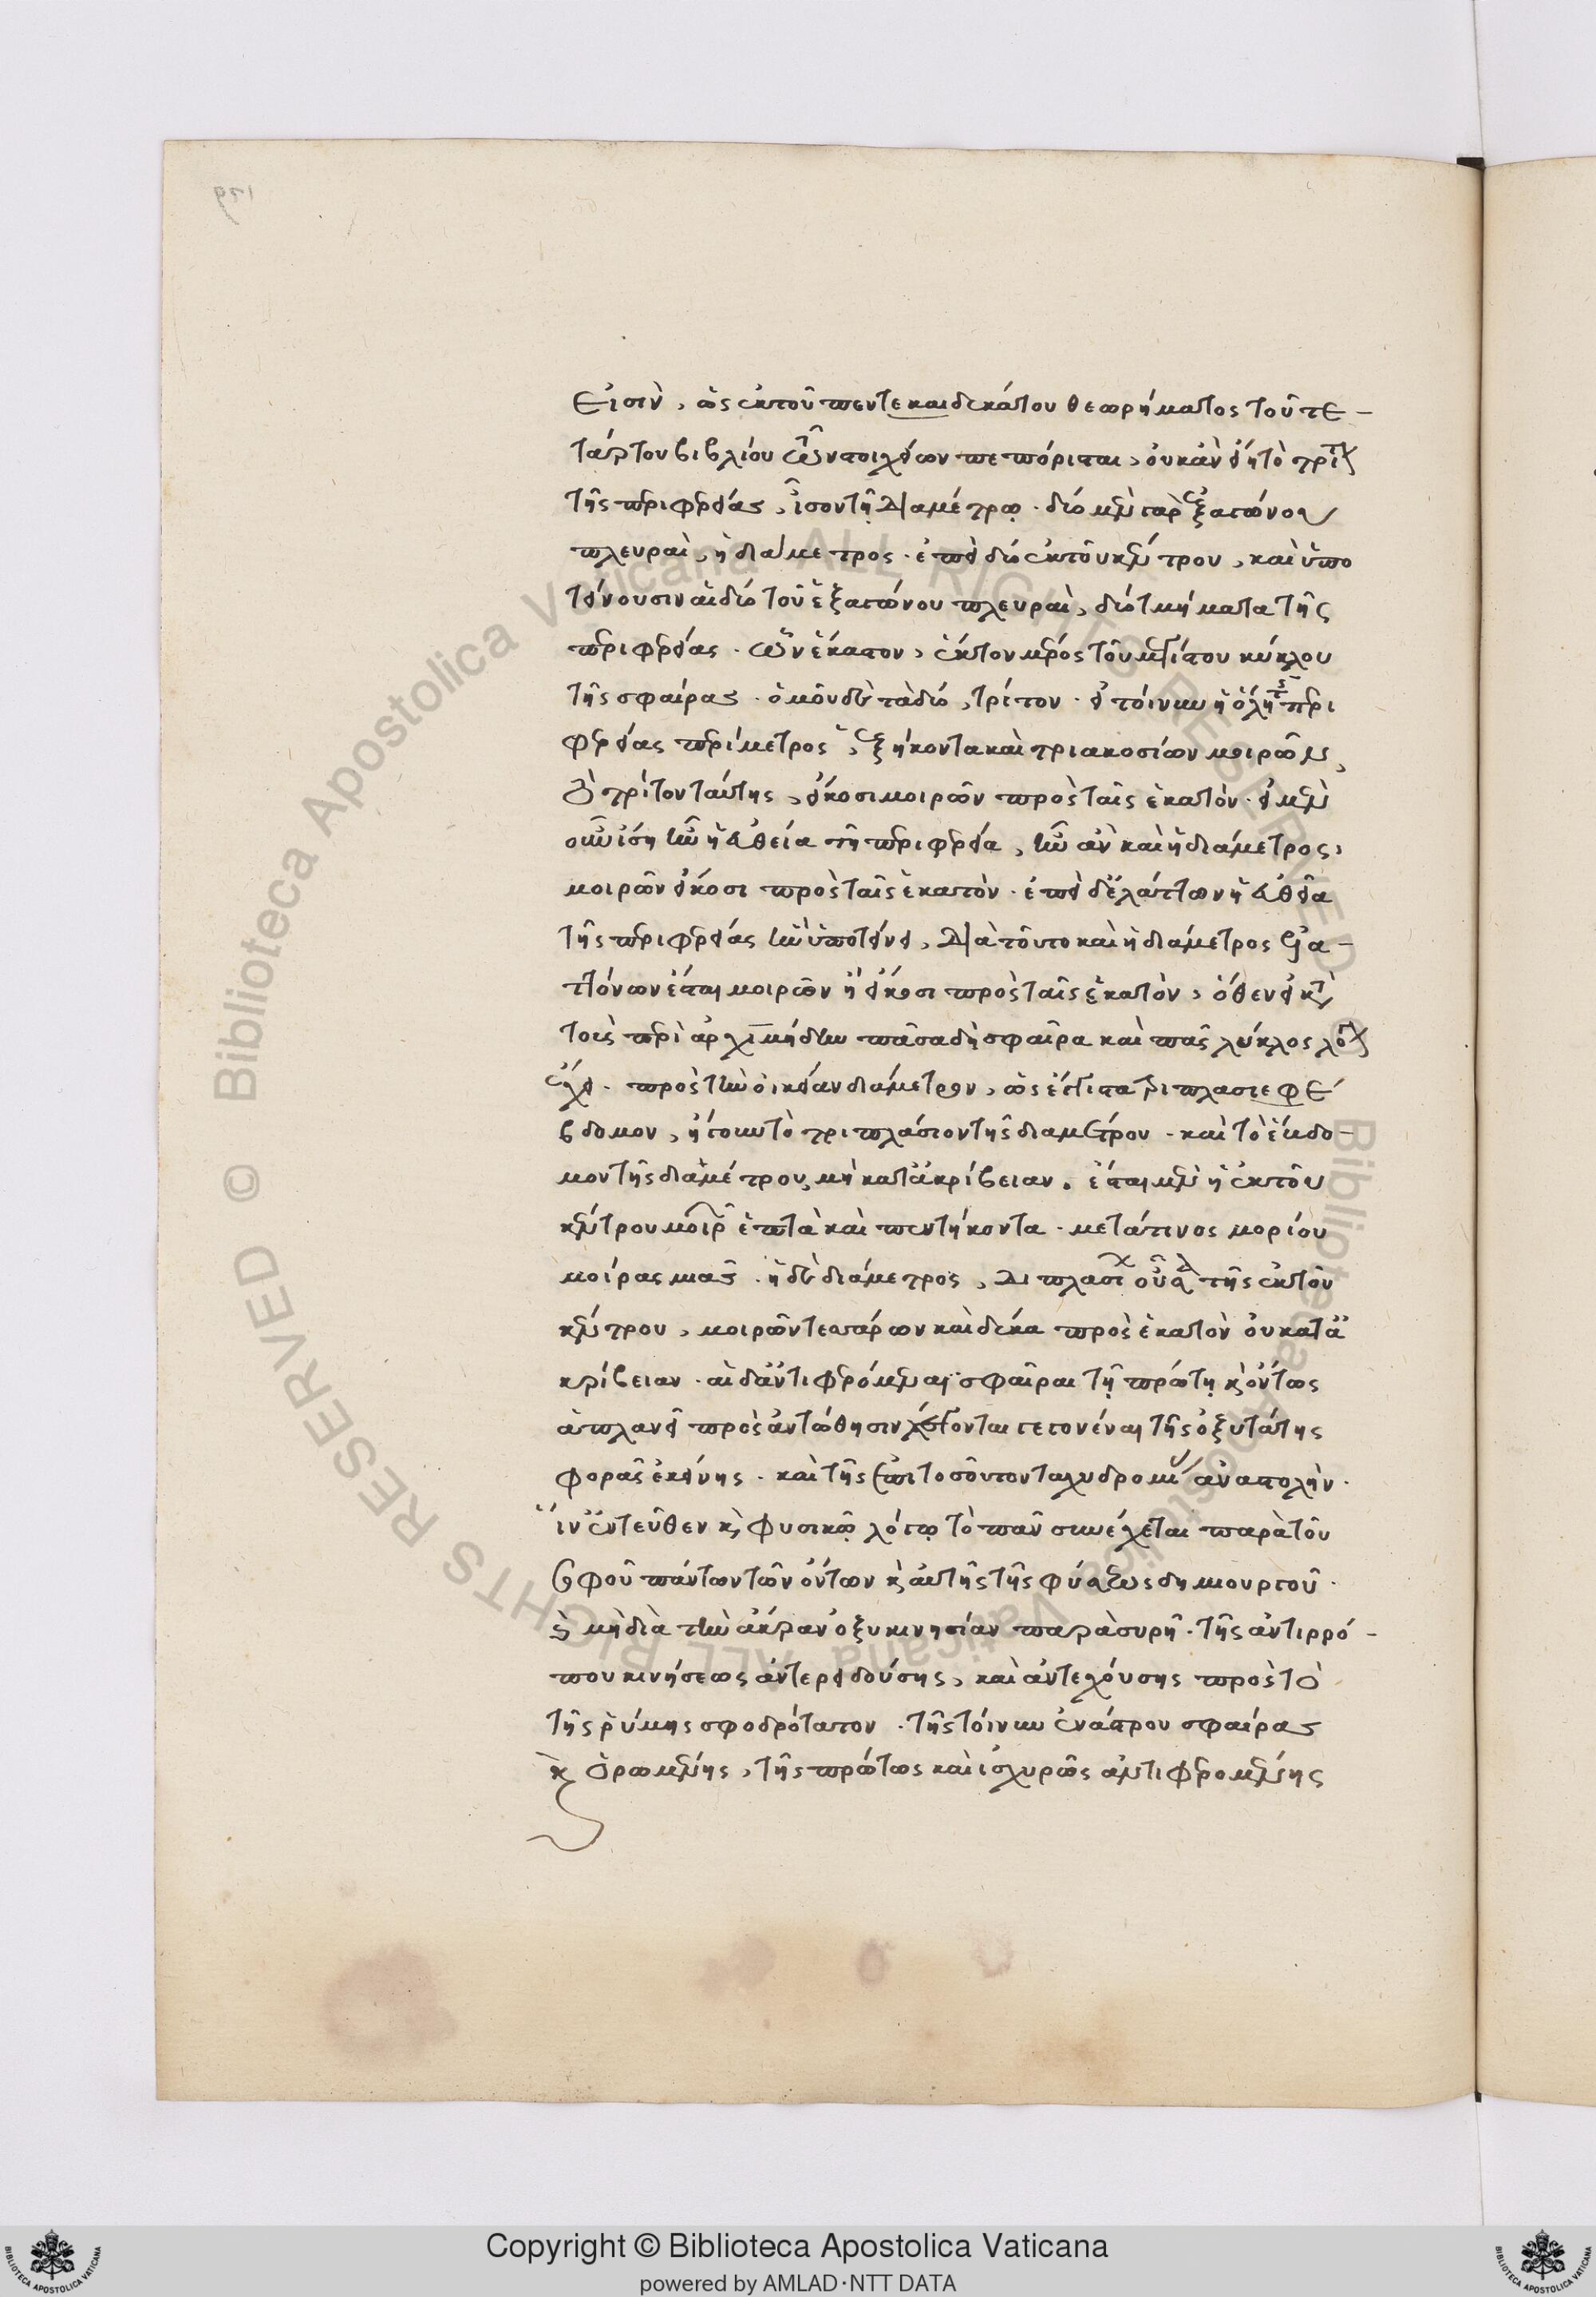 εἰσὶν, ὡς ἐκ τοῦ πεντεκαιδεκάτου θεωρήματος τοῦ τε-
τάρτου βιβλίου τῶν στοιχείων πεπόρισται, οὐκ ἂν εἴη τὸ τρίτον
τῆς περιφερείας, ἴσον τῇ διαμέτρῳ. δύο μὲν γὰρ ἑξαγώνου
πλευραὶ, ἡ διάμετρος. ἐπεὶ δύο ἐκ τοῦ κέντρου, καὶ ὑπο
τείνουσιν αἱ δύο τοῦ ἑξαγώνου πλευραὶ, δύο τμήματα τῆς
περιφερείας. ὧν ἕκαστον, ἕκτον μέρος τοῦ μεγίστου κύκλου
τῆς σφαίρας. ὁμοῦ δὲ τὰ δύο, τρίτον. εἰ τοίνυν ἡ ὅλη τῆς περι
φερείας περίμετρος, ἑξήκοντα καὶ τριακοσίων μοιρῶν,
τὸ τρίτον ταύτης, εἴκοσι μοιρῶν πρὸς ταῖς ἑκατόν. εἰ μὲν
οὖν ἴση ἦν ἡ εὐθεῖα τῇ περιφερεία, ἦν ἂν καὶ ἡ διάμετρος,
μοιρῶν εἴκοσι πρὸς ταῖς ἑκατόν. ἐπεὶ δ' ἐλάττων ἡ εὐθεῖα
τῆς περιφερείας ἣν ὑποτείνει, διὰ τοῦτο καὶ ἡ διάμετρος ἐλα-
ττόνων ἔσται μοιρῶν ἢ εἴκοσι πρὸς ταῖς ἑκατὸν, ὅθεν εἰ κατὰ
τοὺς περὶ ἀρχιμήδην πᾶσα δὴ σφαῖρα καὶ πᾶς κύκλος λόγον
ἔχει. πρὸς τὴν οἰκείαν διάμετρον, ὡς ἔστι τὰ τριπλασιεφέ
βδομον, ἤγουν τὸ τριπλάσιον τῆς διαμέτρου. καὶ τὸ ἕβδο-
μον τῆς διαμέτρου, μὴ κατ' ἀκρίβειαν. ἔσται μὲν ἡ ἐκ τοῦ
κέντρου μοιρῶν ἑπτὰ καὶ πεντήκοντα. μετά τινος μορίου
μοίρας μιᾶς. ἡ δὲ διάμετρος, διπλασίων οὖσα τῆς ἐκ τοῦ
κέντρου, μοιρῶν τεσσάρων καὶ δέκα πρὸς ἑκατὸν οὐ κατ' ἀ
κρίβειαν. αἱ δ' ἀντιφερόμεναι σφαῖραι τῇ πρώτῃ καὶ ὄντως
ἀπλανεῖ πρὸς ἀντώθησιν λέγονται γεγονέναι τῆς ὀξυτάτης
φορᾶς ἐκείνης. καὶ τῆς ἐπὶ τοσοῦτον ταχυδρομίας ἀναστολήν.
ἵν' ἐντεῦθεν καὶ φυσικῷ λόγῳ τὸ πᾶν συνέχεται παρὰ τοῦ
σοφοῦ πάντων τῶν ὄντων καὶ αὐτῆς τῆς φύσεως δημιουργοῦ.
καὶ μὴ διὰ τὴν ἄκραν ὀξυκινησίαν παρασυρῇ. τῆς ἀντιρρό-
που κινήσεως ἀντερειδούσης, καὶ ἀντεχούσης πρὸς τὸ
τῆς ῥύμης σφοδρότατον. τῆς τοίνυν ἐνάστρου σφαίρας
καὶ ὁρωμένης, τῆς πρώτως καὶ ἰσχυρῶς ἀντιφερομένης
Copyright © Biblioteca Apostolica Vaticana
powered by AMLAD·NTT DATA